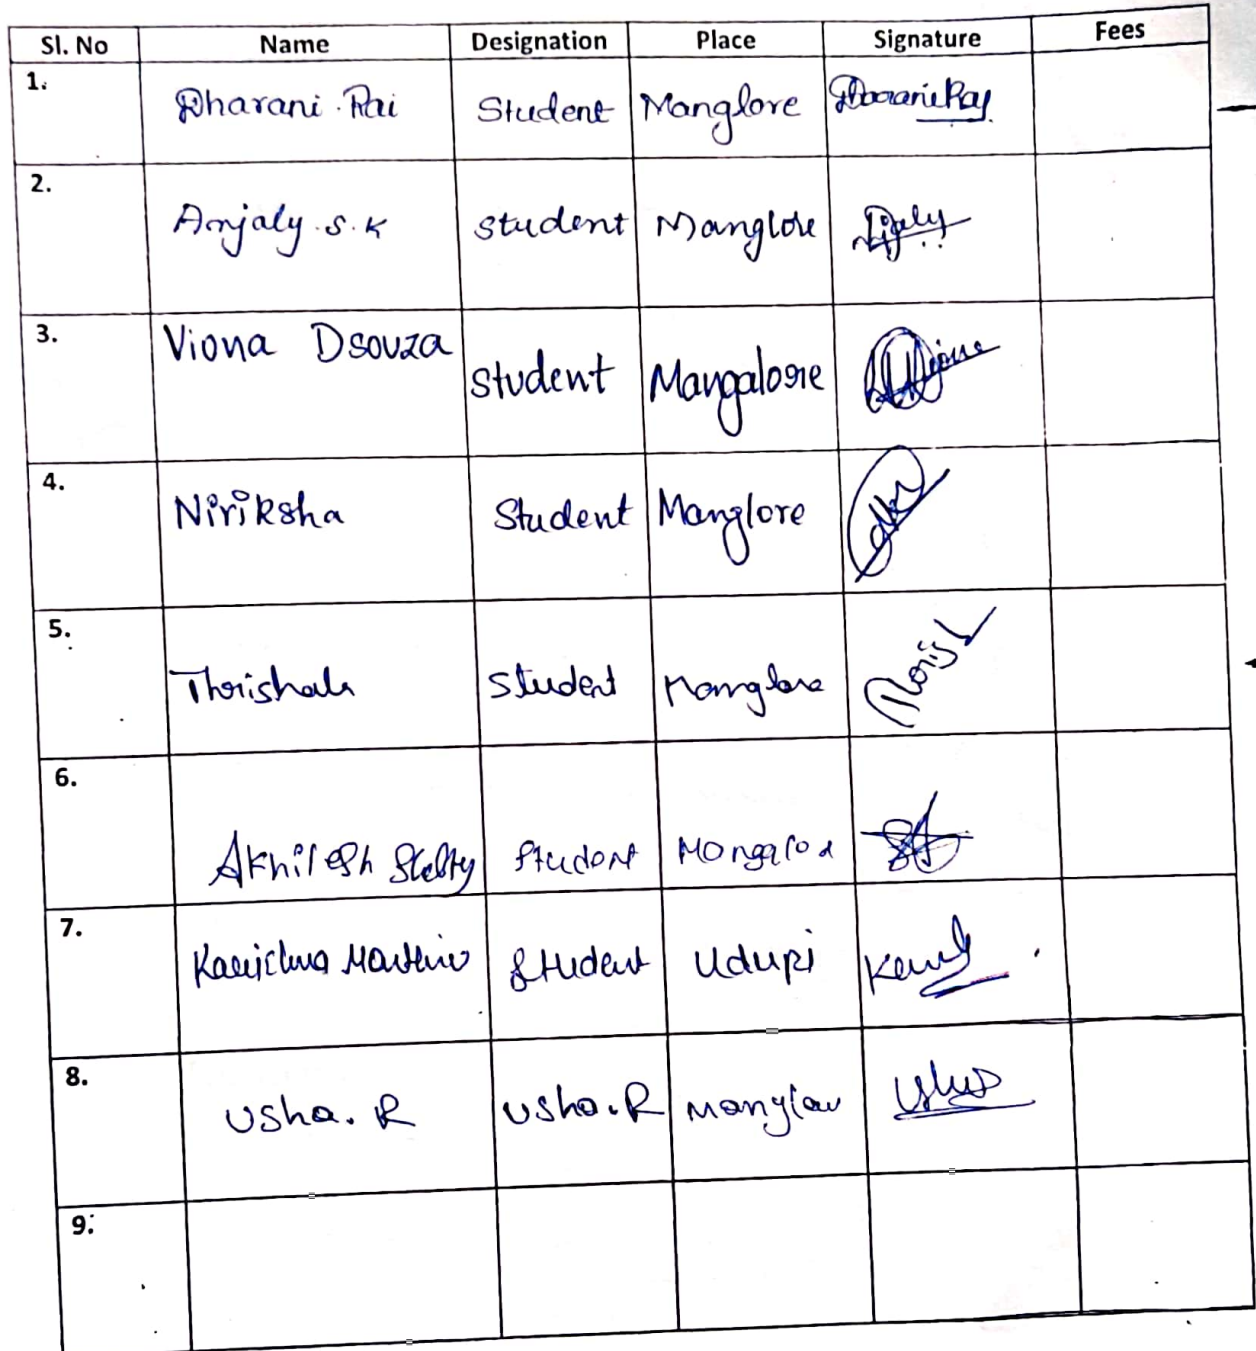 Sl. No Name Designation Place Signature Fees
1. Dharani Rai Student Manglore Dharani Rai
2. Anjaly .S.K Student Manglore
3. Viona Dsouza Student Mangalore
4. Niriksha Student Manglore
5. Thrishala Student Manglore
6. Akhilesh Shetty Student Mangalore
7. Student Udupi
8. Usha. R Usha. R Usha
9.